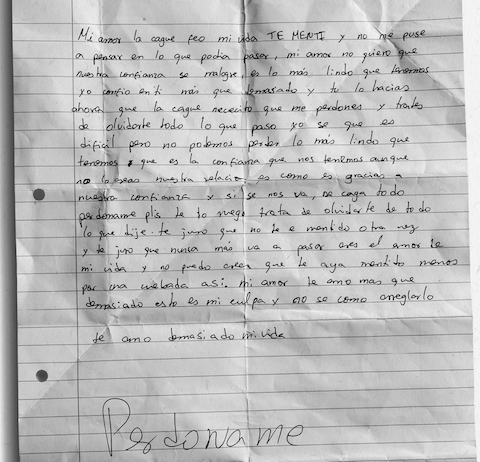 Mi amor la cague feo mi vida TE MENTI y no me puse
a pensar en lo que podia pasar, mi amor no quiero que
nuestra confianza se malogre, es lo más lindo que tenemos
yo confio en ti más que demasiado y tu lo hacias
ahora que la cague nececito que me perdones y trates
de olvidarte todo lo que paso yo se que es
dificil pero no podemos perder lo más lindo que
tenemos que es la confianza que nos tenemos aunque
no lo creas nuestra relacion es como es gracias a
nuestra confianza y si se nos va, se caga todo
perdoname plis te lo ruego trata de olvidarte de todo
lo que dije te juro que no te e mentido otra vez
y te juro que nunca más va a pasar eres el amor de
mi vida y no puedo creer que te aya mentido menos
por una webada asi. mi amor te amo mas que
demasiado esto es mi culpa y no se como arreglarlo
te amo demasiado mi vida
Perdoname